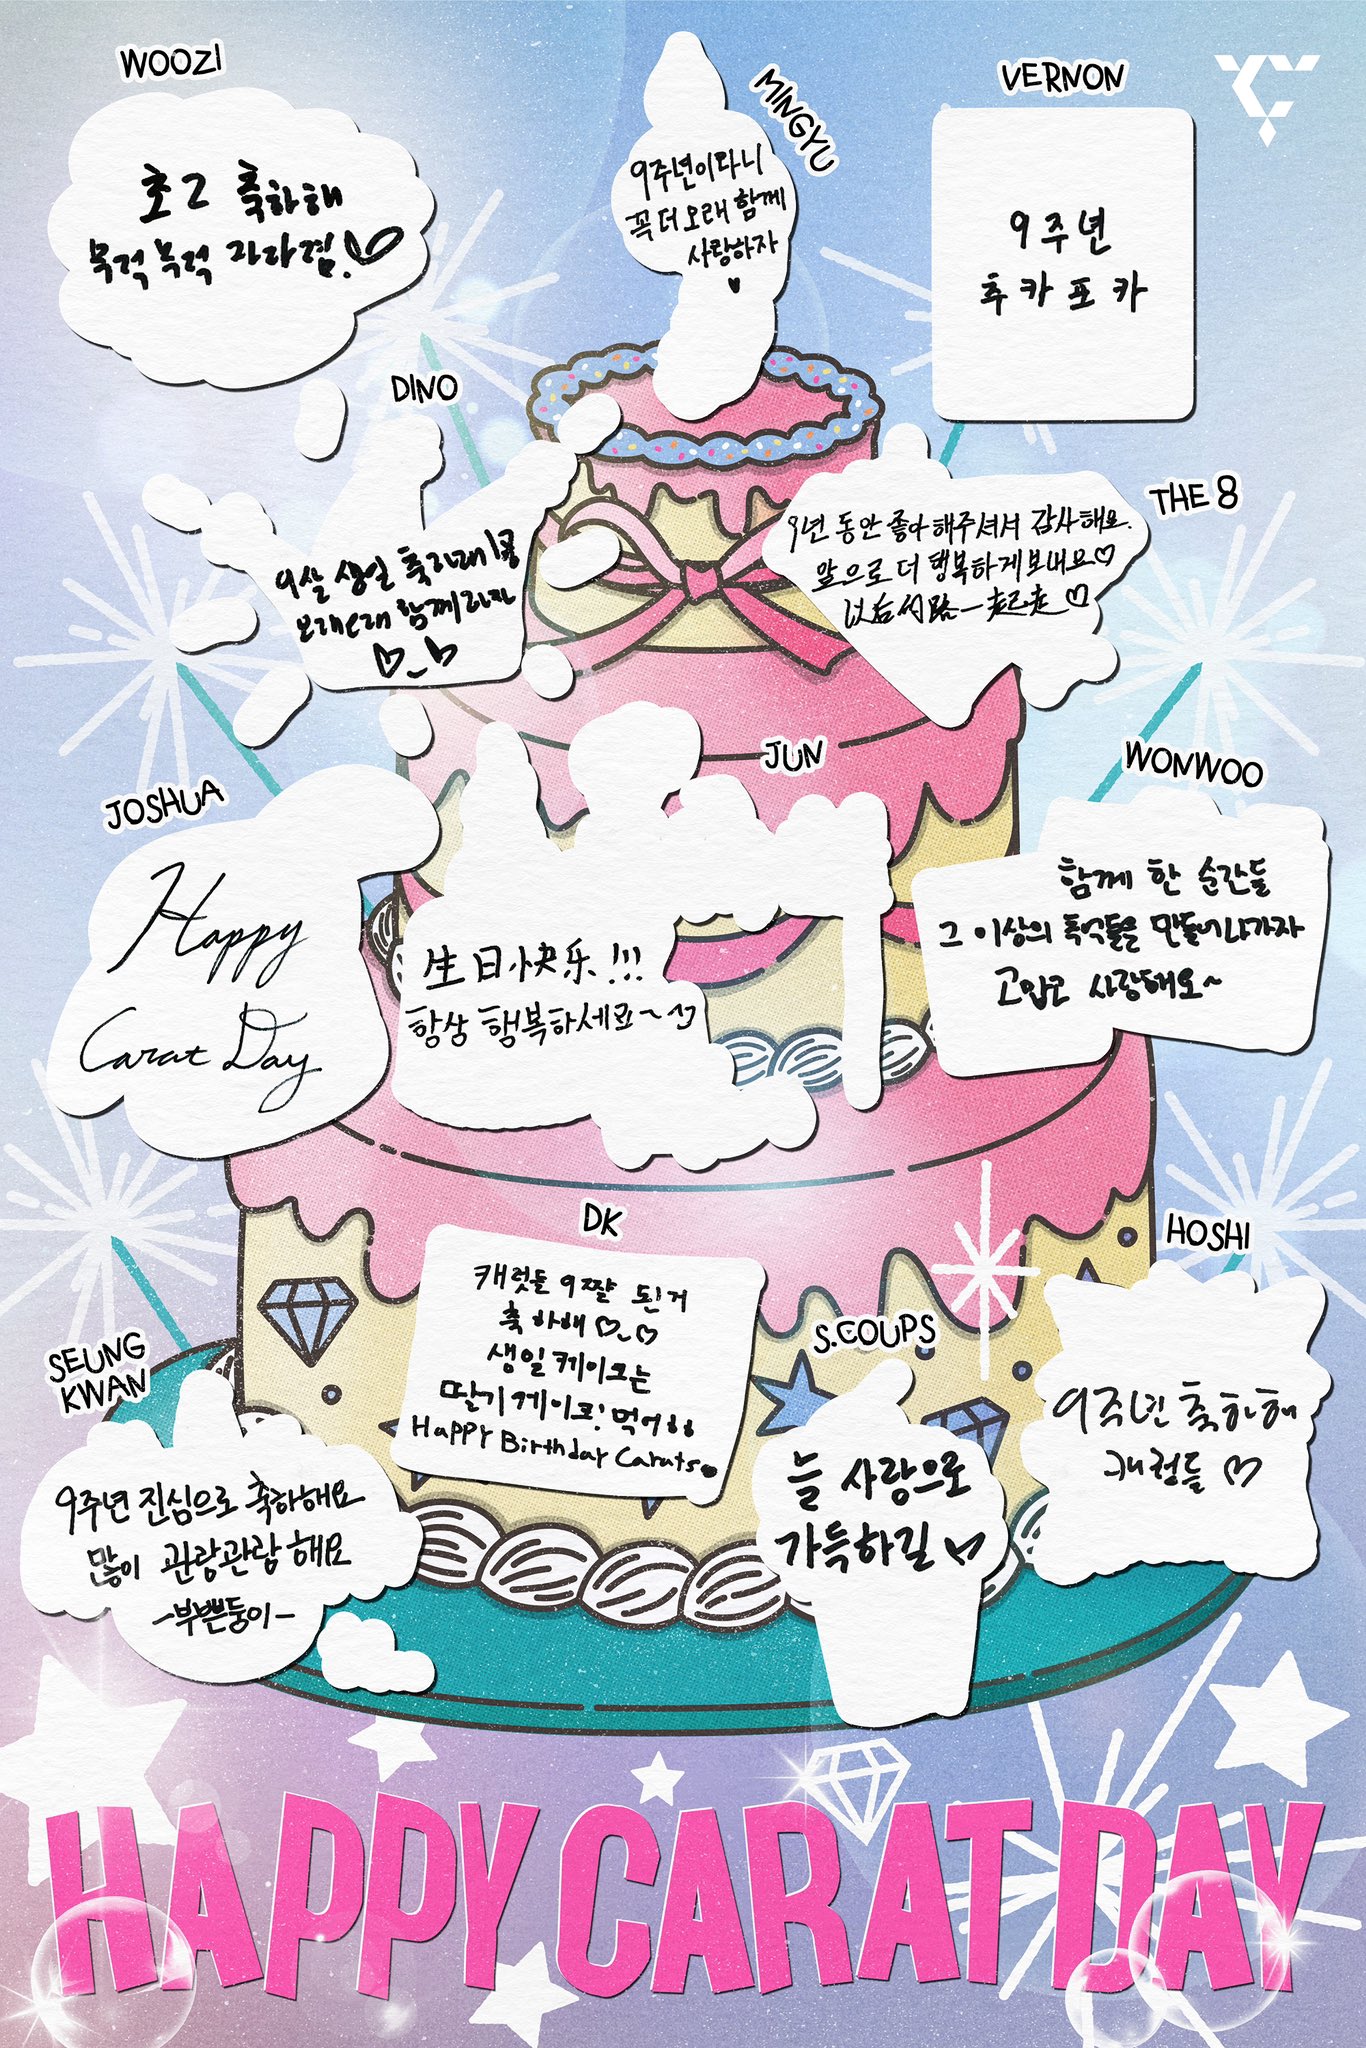 WOOZI
초2 축하해
무럭무럭 자라렴!♡
MINGYU
9주년이라니
꼭 더 오래 함께
사랑하자
♥
VERNON
9주년
추카포카
DINO
9살 생일 축하해
오래오래 함께하자
♡_♡
THE 8
9년 동안 좋아해주셔서 감사해요.
앞으로 더 행복하게 보내요♡
以后的路一起走♡
JOSHUA
Happy
Carat Day
JUN
生日快乐!!!
항상 행복하세요~
WONWOO
함께 한 순간들
그 이상의 추억들을 만들어나가자
고맙고 사랑해요~
DK
캐럿들 9짤 된거
축하해 ♡_♡
생일케이크는
딸기케이크! 먹어ㅎㅎ
Happy Birthday Carats♥
S.COUPS
늘 사랑으로
가득하길 ♡
HOSHI
9주년 축하해
캐럿들 ♡
SEUNG
KWAN
9주년 진심으로 축하해요
많이 관랑관랑해요
-부쁜둥이-
HAPPY CARAT DAY